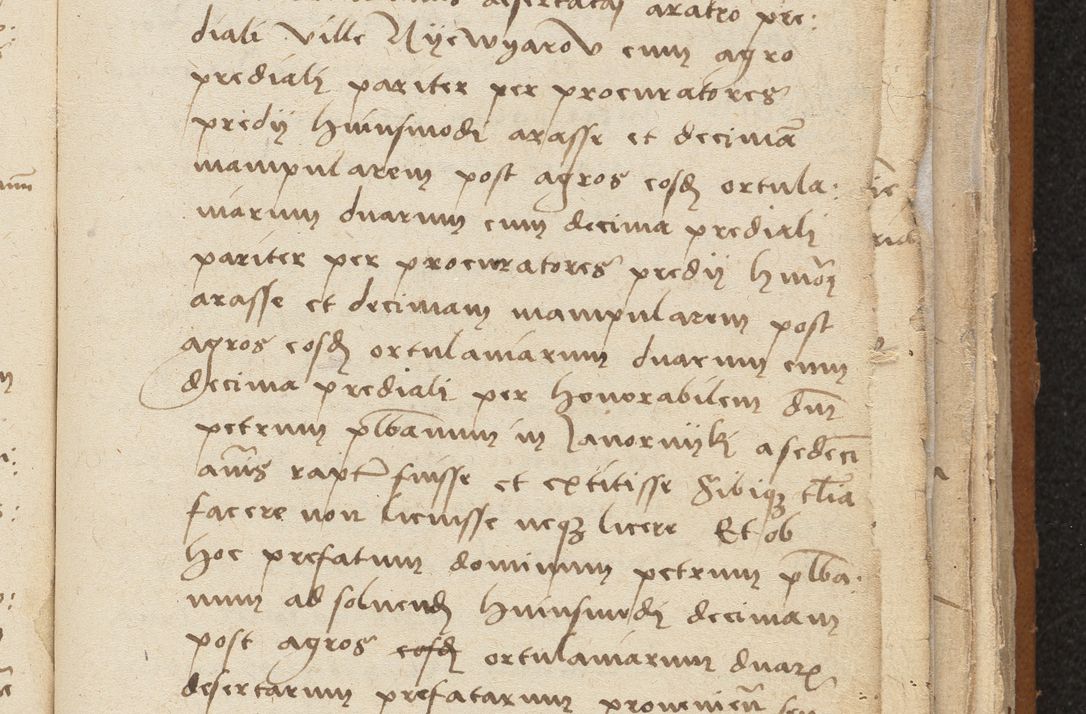 desertatas aratro pre:
diali ville Nyewyarow cum agro
prediali pariter per procuratores
predij huiusmodi arasse et decimā
manipularem post agros eosd ortula:
niarum duarum cum decima prediali
pariter per procuratores predij hmōi
arasse et decimam manipularem post
agros eosd ortulaniarum duarum cum
decima prediali per honorabilem dnm
petrum plbanum in Jawornyk a sedecī
annis rapt fuisse et extitisse Sibiqz tlia
facere non licuisse neqz licere Et ob
hoc prefatum dominum petrum plba:
num ad soluend huiusmodi decimam
post agros eosd ortulaniarum duarx
desertarum prefatarum provenien seu